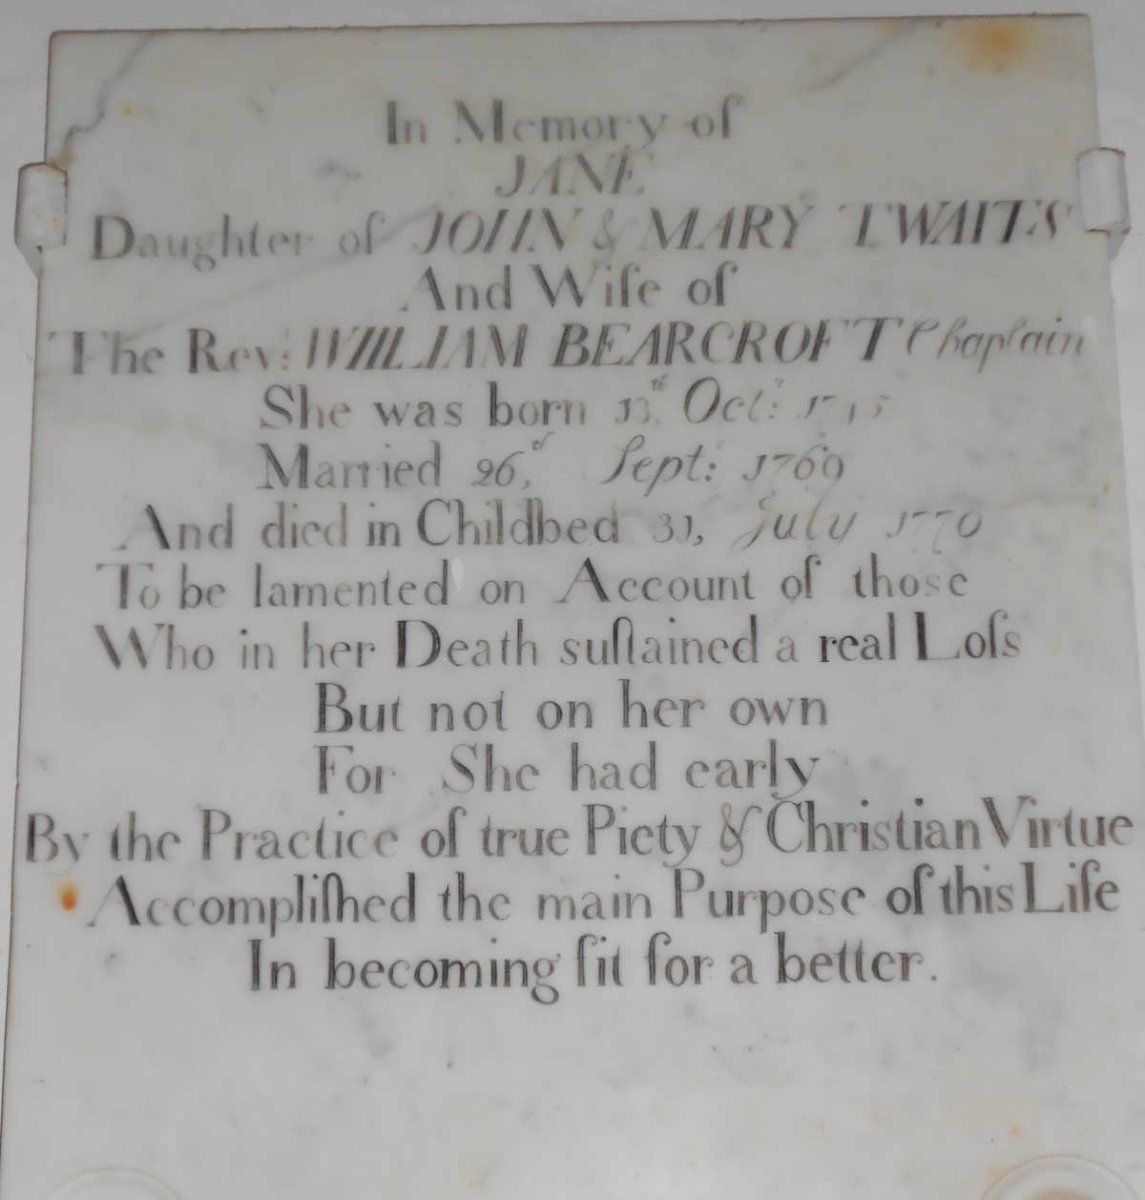 In Memory of
JANE
Daughter of JOHN & MARY TWAITS
And Wife of
The Rev: WILLIAM BEARCROFT Chaplain
She was born 13,th Oct:
Married 26,th Sept: 1769
And died in Childbed 31, July 1770
To be lamented on Account of those
Who in her Death suſtained a real Loſs
But not on her own
For She had early
By the Practice of true Piety & Christian Virtue
Accompliſhed the main Purpose of this Life
In becoming fit for a better.